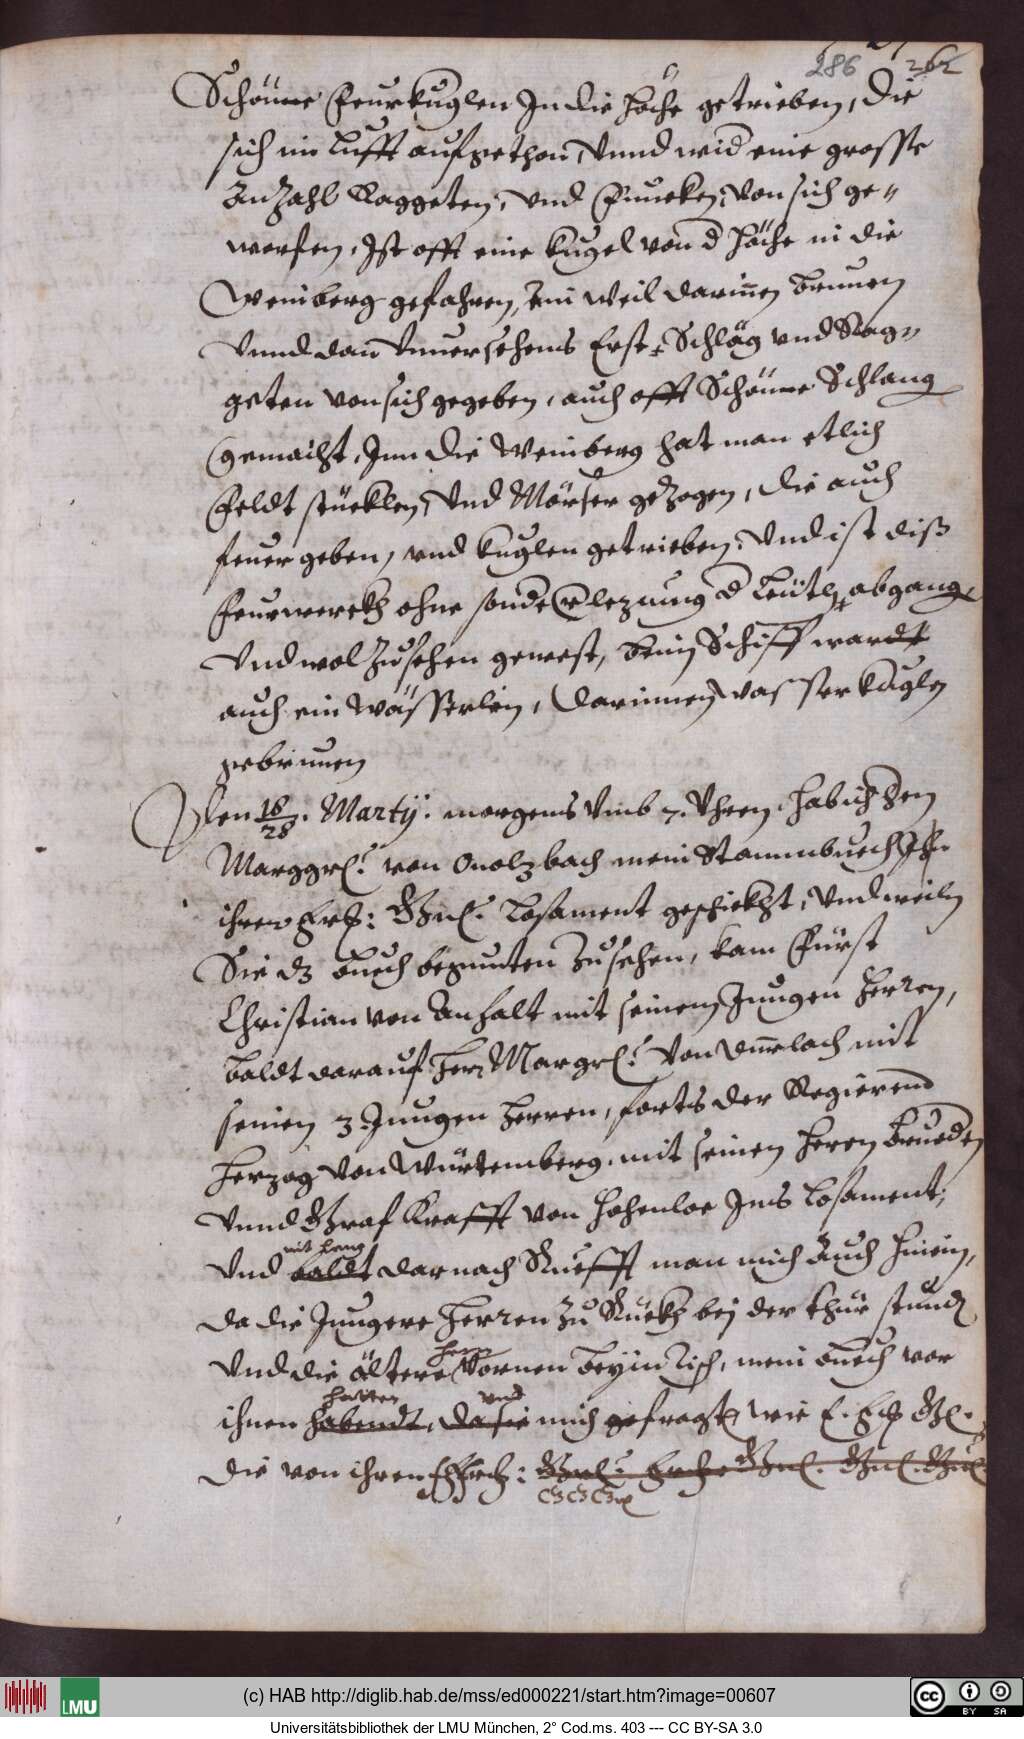 286 262
Schöune Feurkuglen In die höche getrieben, die
sich im lufft aufgethon, Vnnd wid eine grosse
Anzahl Raggeten, vnd Funcken, von sich ge„
worfen, Ist offt eine kugel von d höche in die
Weinberg gefahren, ein weil darinnen brunnen
Vnnd dan Vnuersehens Erst Schläg vnd Rag„
geten von sich gegeben, auch offt Schöune Schlang
gemacht, Inn die Weinberg hat man etlich
Feldt stücklen, Vnd Mörser gezogen, die auch
feuer geben, vnd kuglen getrieben, Vnd ist diß
Feurwerckh ohne sonder lezung d Leüth abgang,
Vnd wol zusehen gewest, beim Schiff wardt
auch ein Wässerlin, darinnen wasserkuglen
gebrunnen
Den 18/28. Martÿ. morgens Vmb 7. Vhren, hab ich den
Marggrl. von Onolzbach mein Stammbuech In
ihrer Frl: Gnl. Losament geschickht, Vnd weiln
Sie dz buech begunten zusehen, kam Fürst
Christian von Anhalt mit seinem Jungen herren,
baldt darauf herr Margrl. von Durlach mit
seinen 3 Jungen herren, forts der Regierend
Herzog von Würtemberg, mit seinen herrn brueder
Vnnd Graf Krafft von Hohenloe Ins Losament,
mit hin
Vnd baldt darnach Ruefft man mich auch hinein,
da die Jungere herren zu Ruckh bej der thür stund
herrn
Vnd die ältere Vornen beyin Tisch, mein buech vor
hatten vnd
ihnen habendt, da sie mich gefragt, wie E. Frl Gl.
die von ihren